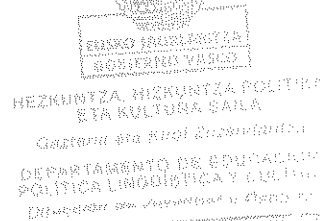 EUSKO JAURLARITZA
GOBIERNO VASCO
HEZKUNTZA, HIZKUNTZA POLITIKA
ETA KULTURA SAILA
Gazteria eta Kirol Zuzendaritza
DEPARTAMENTO DE EDUCACIÓN
POLÍTICA LINGÜÍSTICA Y CULTURA
Dirección de Juventud y Deporte